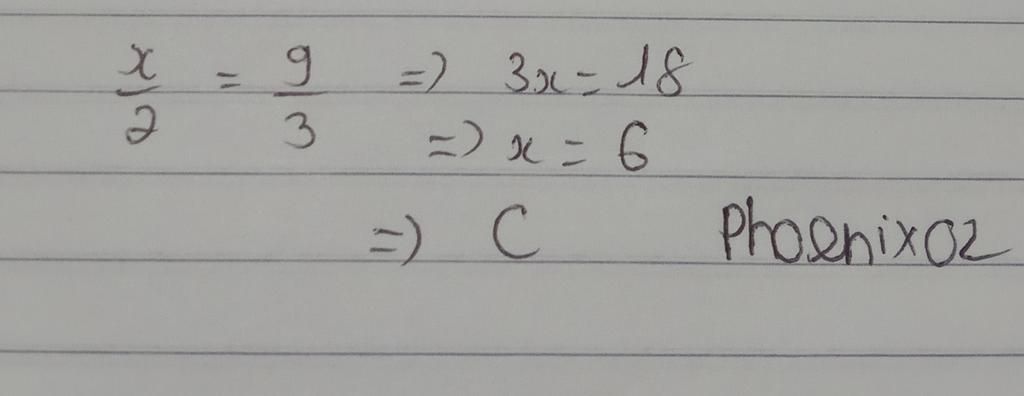 x/2 = 9/3 => 3x = 18
=> x = 6
=> C Phoenix02